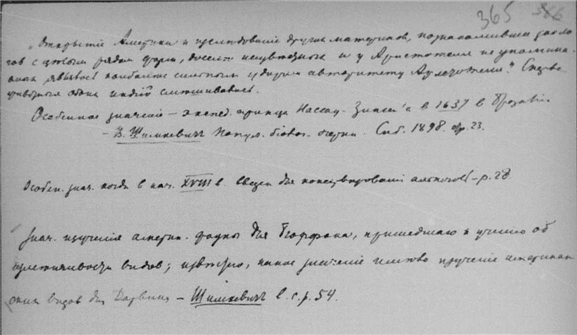 365
„Открытiе Америки и изслѣдованiе других материков, познакомивши зооло
гов с цѣлым рядом форм, доселѣ неизвѣстных и у Аристотеля не упомина
емых, явилось наиболѣе сильным ударом авторитету
Особенное значенiе – экспед. принца Нассау-Зиген'а в 1637 в Бразилiю
– В. Шимкевичъ Попул. бiолог. очерки. Спб. 1898. стр. 23.
Особен. знач. когда в нач. XVIII в. введен для консервированiя алкоголь – p. 28
Знач. изученiя америк. фауны для Бюффона, пришедшаго к ученiю об
измѣнчивости видов; извѣстно, какое значенiе имѣло изученiе американ
ских видов для Дарвина – Шимкевичъ l. c. p. 54.